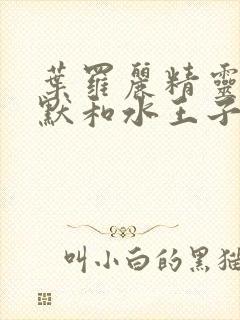 葉羅麗精靈
默和水王子
叫小白的黑猫